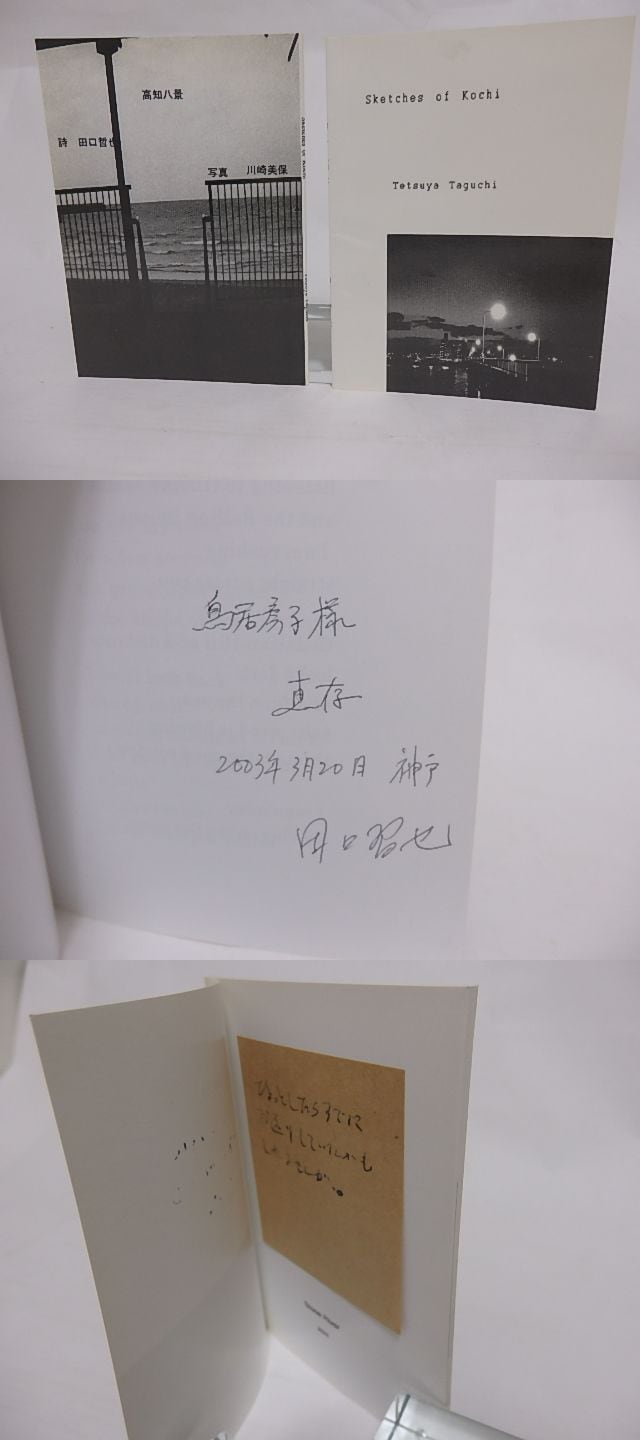 高知八景
詩 田口哲也
写真 川崎美保
Sketches of Kochi
Tetsuya Taguchi
鳥居房子様
恵存
2003年3月20日 神戸
田口哲也
ひょっとしたらすでに
お送りしていたかも
しれませんが。